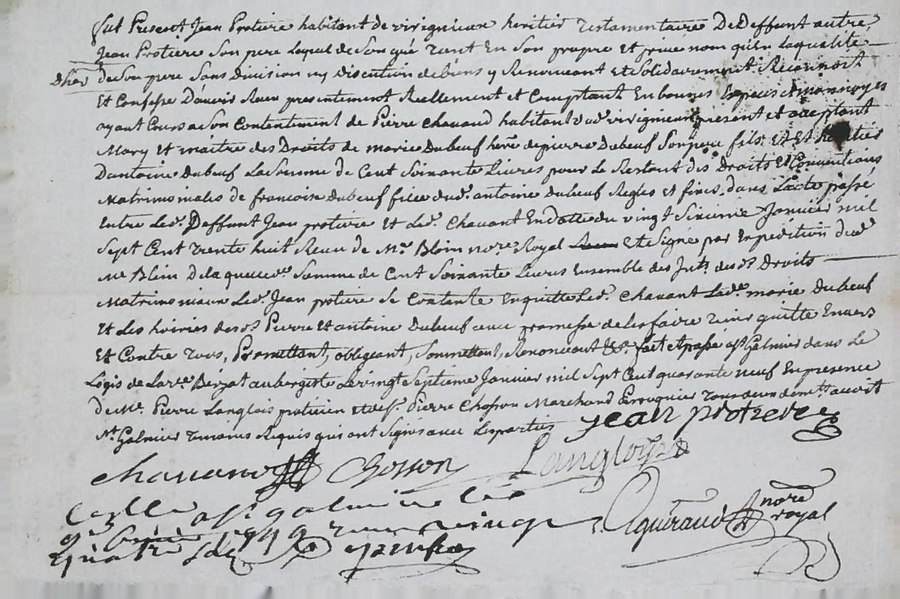 fut Present Jean Protiere habitant de virignieux heritier Testamentaire De Deffunt autre
Jean Protiere Son pere Lequel de Son gré tant En Son propre et privé nom qu'en la qualité
D'her. de Son pere Sans division ny discution de biens y Renonceant et Solidairement Reconnoit
Et Confesse D'avoir Receu presentement Reellement et Comptant En bonnes Especes et monnoyes
ayant Cours a Son Contentement de Pierre Chavand habitant dud. virignieux present et acceptant
Mary et maitre des Droits de marie Dubeuf here. de pierre Dubeuf Son pere fils et Et heritiers
D'antoine dubeuf La Somme de Cent Soixante Livres pour Le Restant des Droits Et Conventions
Matrimoniales de francoise Dubeuf fille dud. antoine dubeuf Regles et fixes dans L'acte passé
Entre Led. Deffunt Jean protiere et Led. Chavant En datte du vingt Sixieme Janvier mil
Sept Cent trente huit Receu de Me. Blein nore. Royal Et Signé par Expedition dud.
Me Blein De laquelle Somme de Cent Soixante Livres Ensemble des Intts. des ds. Droits
Matrimoniaux Led. Jean protiere Se Contente En quitte Led. Chavant Lade. marie Dubeuf
Et Les hoiries des ds. Pierre Et antoine Dubeuf avec promesse de Les faire tenir quitte Envers
Et Contre tous, Promettant, obligeant, Soumettant, Renonceant &a. fait et passé a St. Galmier dans Le
Logis de La ve. Berzat aubergiste Le vingt Septieme Janvier mil Sept Cent quarante neuf En presence
De Me. Pierre Langlois praticien et de Sr. Pierre Chosson Marchand Perruquier Tous deux demts. audit
St. Galmier Temoins Requis qui ont Signés avec Les parties Jean protiere
chavano Chosson Langloys
Pguiraud nore royal
Collé a St galmier le
1749 Receu vingt
quatre sols